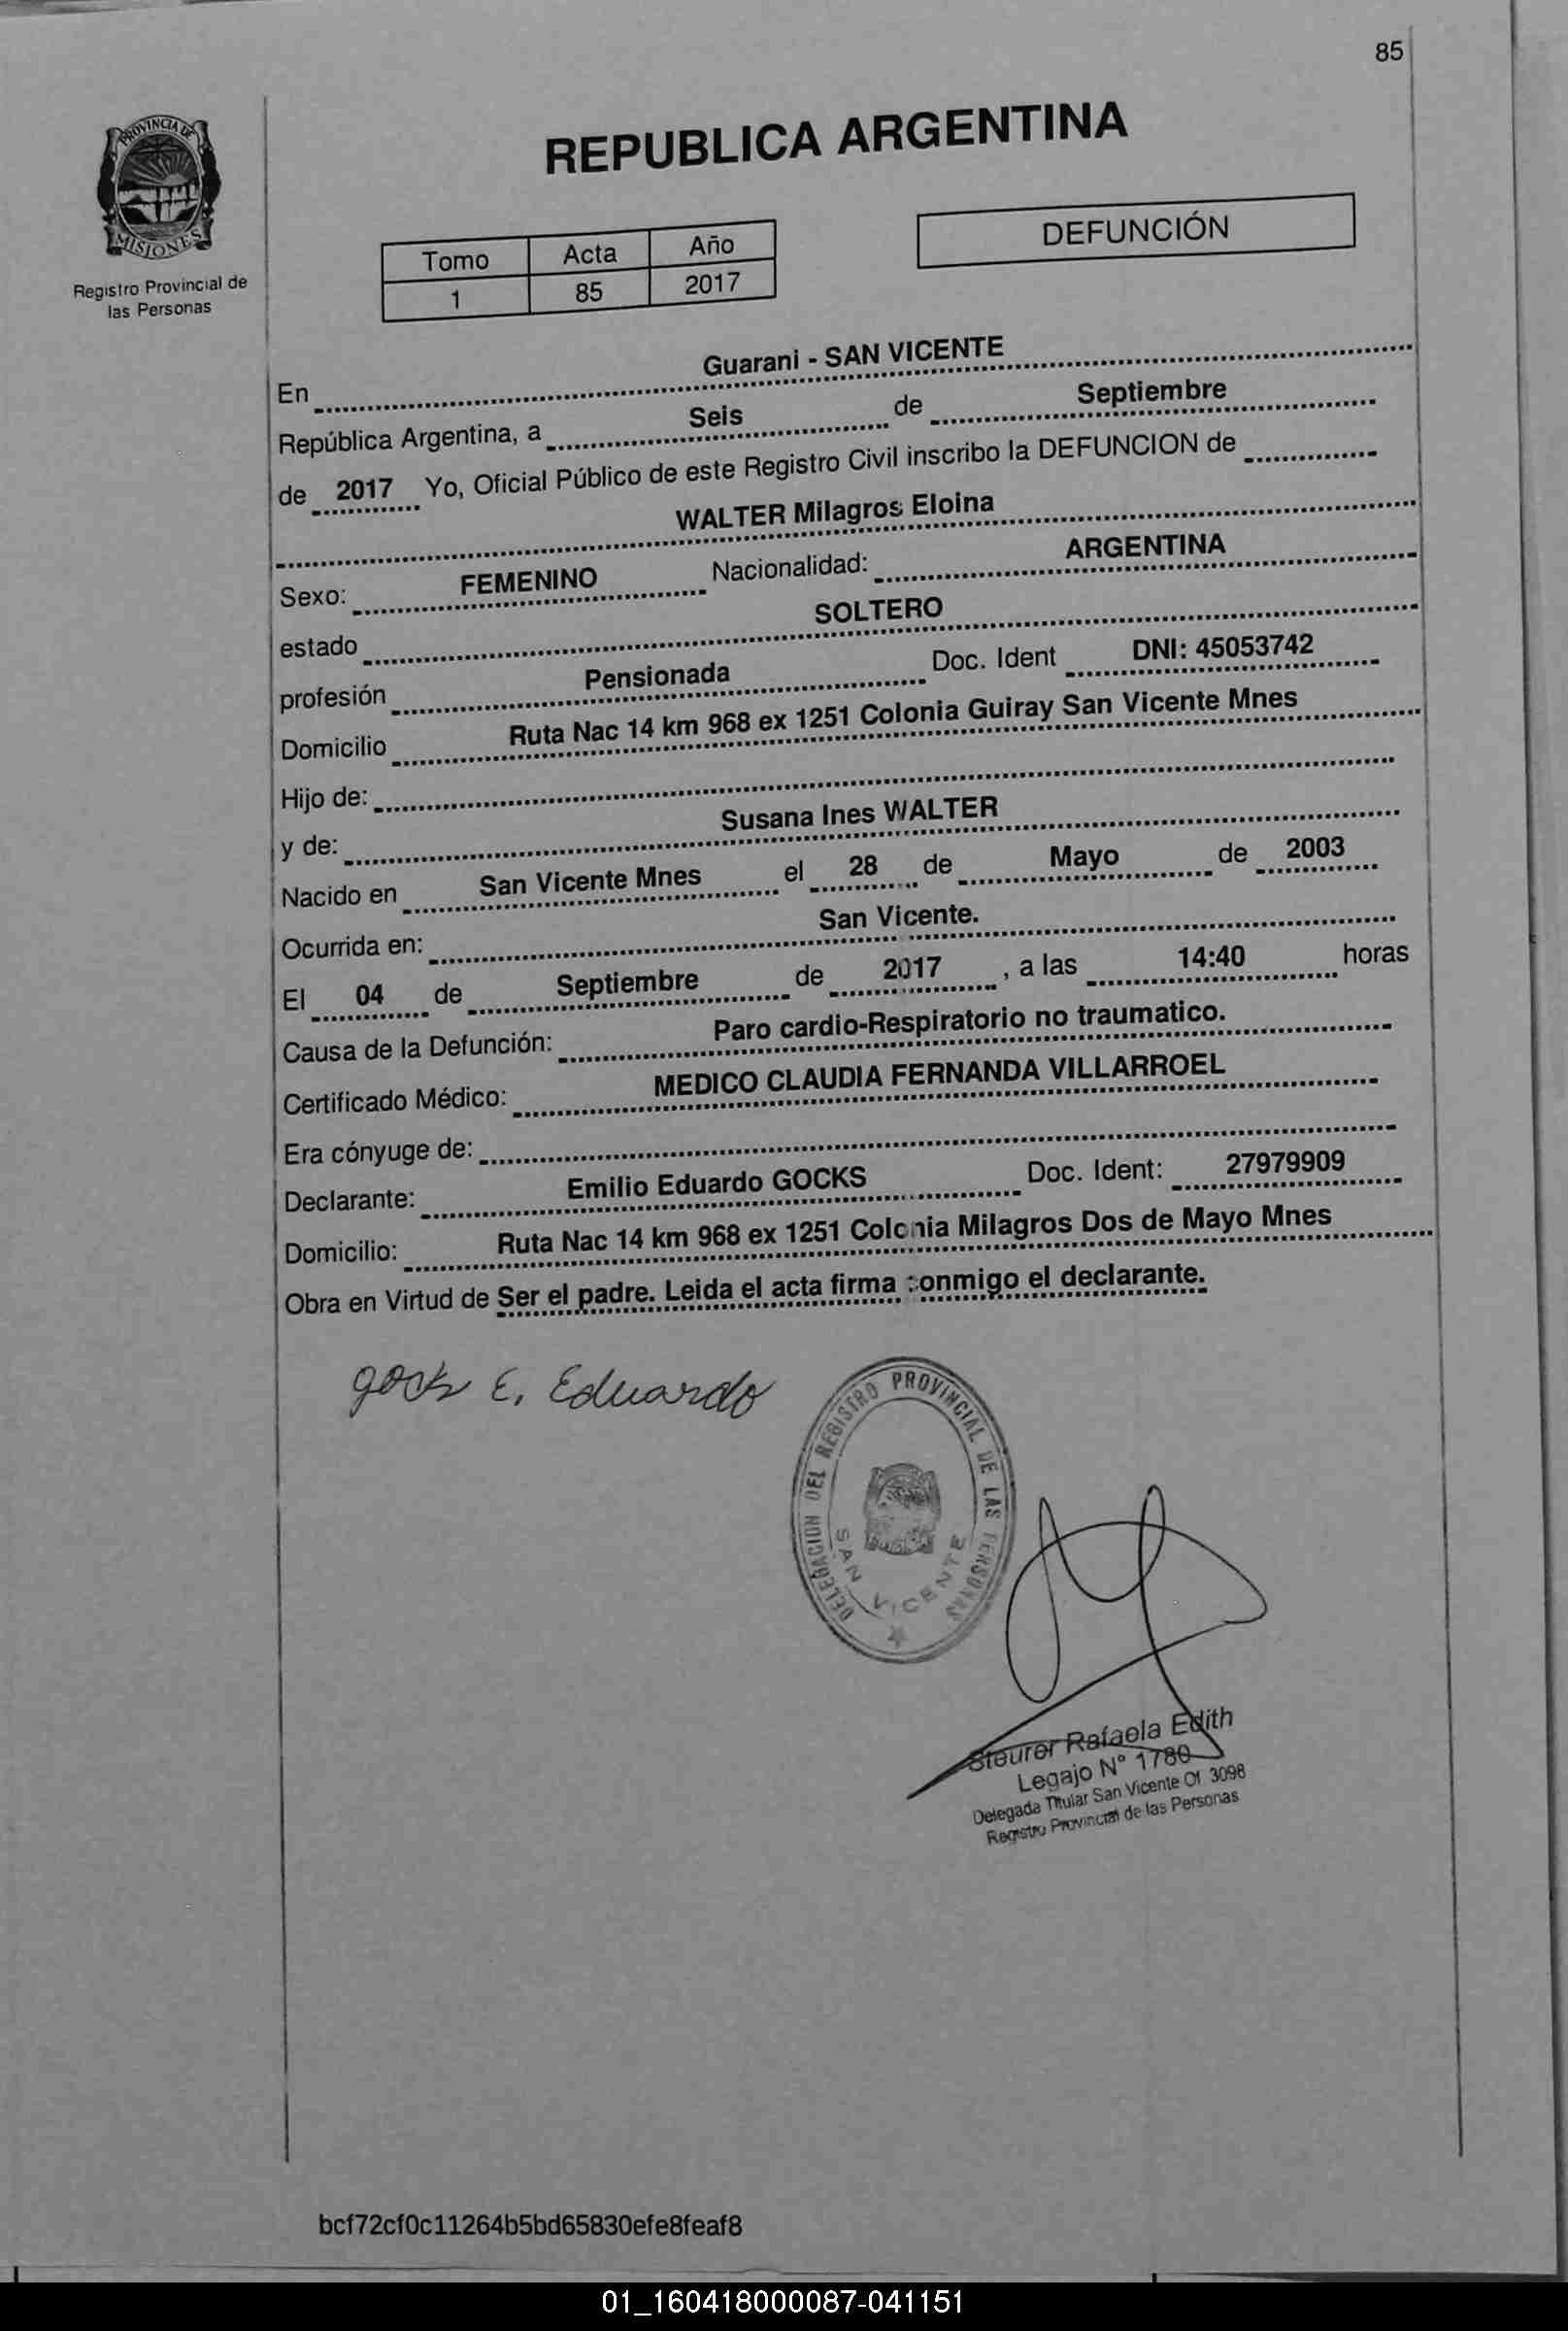 85
PROVINCIA DE
MISIONES
Registro Provincial de
las Personas
REPUBLICA ARGENTINA
Tomo Acta Año
1 85 2017
DEFUNCIÓN
En Guarani - SAN VICENTE
República Argentina, a Seis de Septiembre
de 2017 Yo, Oficial Público de este Registro Civil inscribo la DEFUNCION de
WALTER Milagros Eloina
Sexo: FEMENINO Nacionalidad: ARGENTINA
estado SOLTERO
profesión Pensionada Doc. Ident DNI: 45053742
Domicilio Ruta Nac 14 km 968 ex 1251 Colonia Guiray San Vicente Mnes
Hijo de:
y de: Susana Ines WALTER
Nacido en San Vicente Mnes el 28 de Mayo de 2003
Ocurrida en: San Vicente.
El 04 de Septiembre de 2017 , a las 14:40 horas
Causa de la Defunción: Paro cardio-Respiratorio no traumatico.
Certificado Médico: MEDICO CLAUDIA FERNANDA VILLARROEL
Era cónyuge de:
Declarante: Emilio Eduardo GOCKS Doc. Ident: 27979909
Domicilio: Ruta Nac 14 km 968 ex 1251 Colonia Milagros Dos de Mayo Mnes
Obra en Virtud de Ser el padre. Leida el acta firma conmigo el declarante.
E. Eduardo
DELEGACION DEL REGISTRO PROVINCIAL DE LAS PERSONAS
SAN VICENTE
Steurer Rafaela Edith
Legajo N° 1780
Delegada Titular San Vicente Of 3098
Registro Provincial de las Personas
bcf72cf0c11264b5bd65830efe8feaf8
01_160418000087-041151